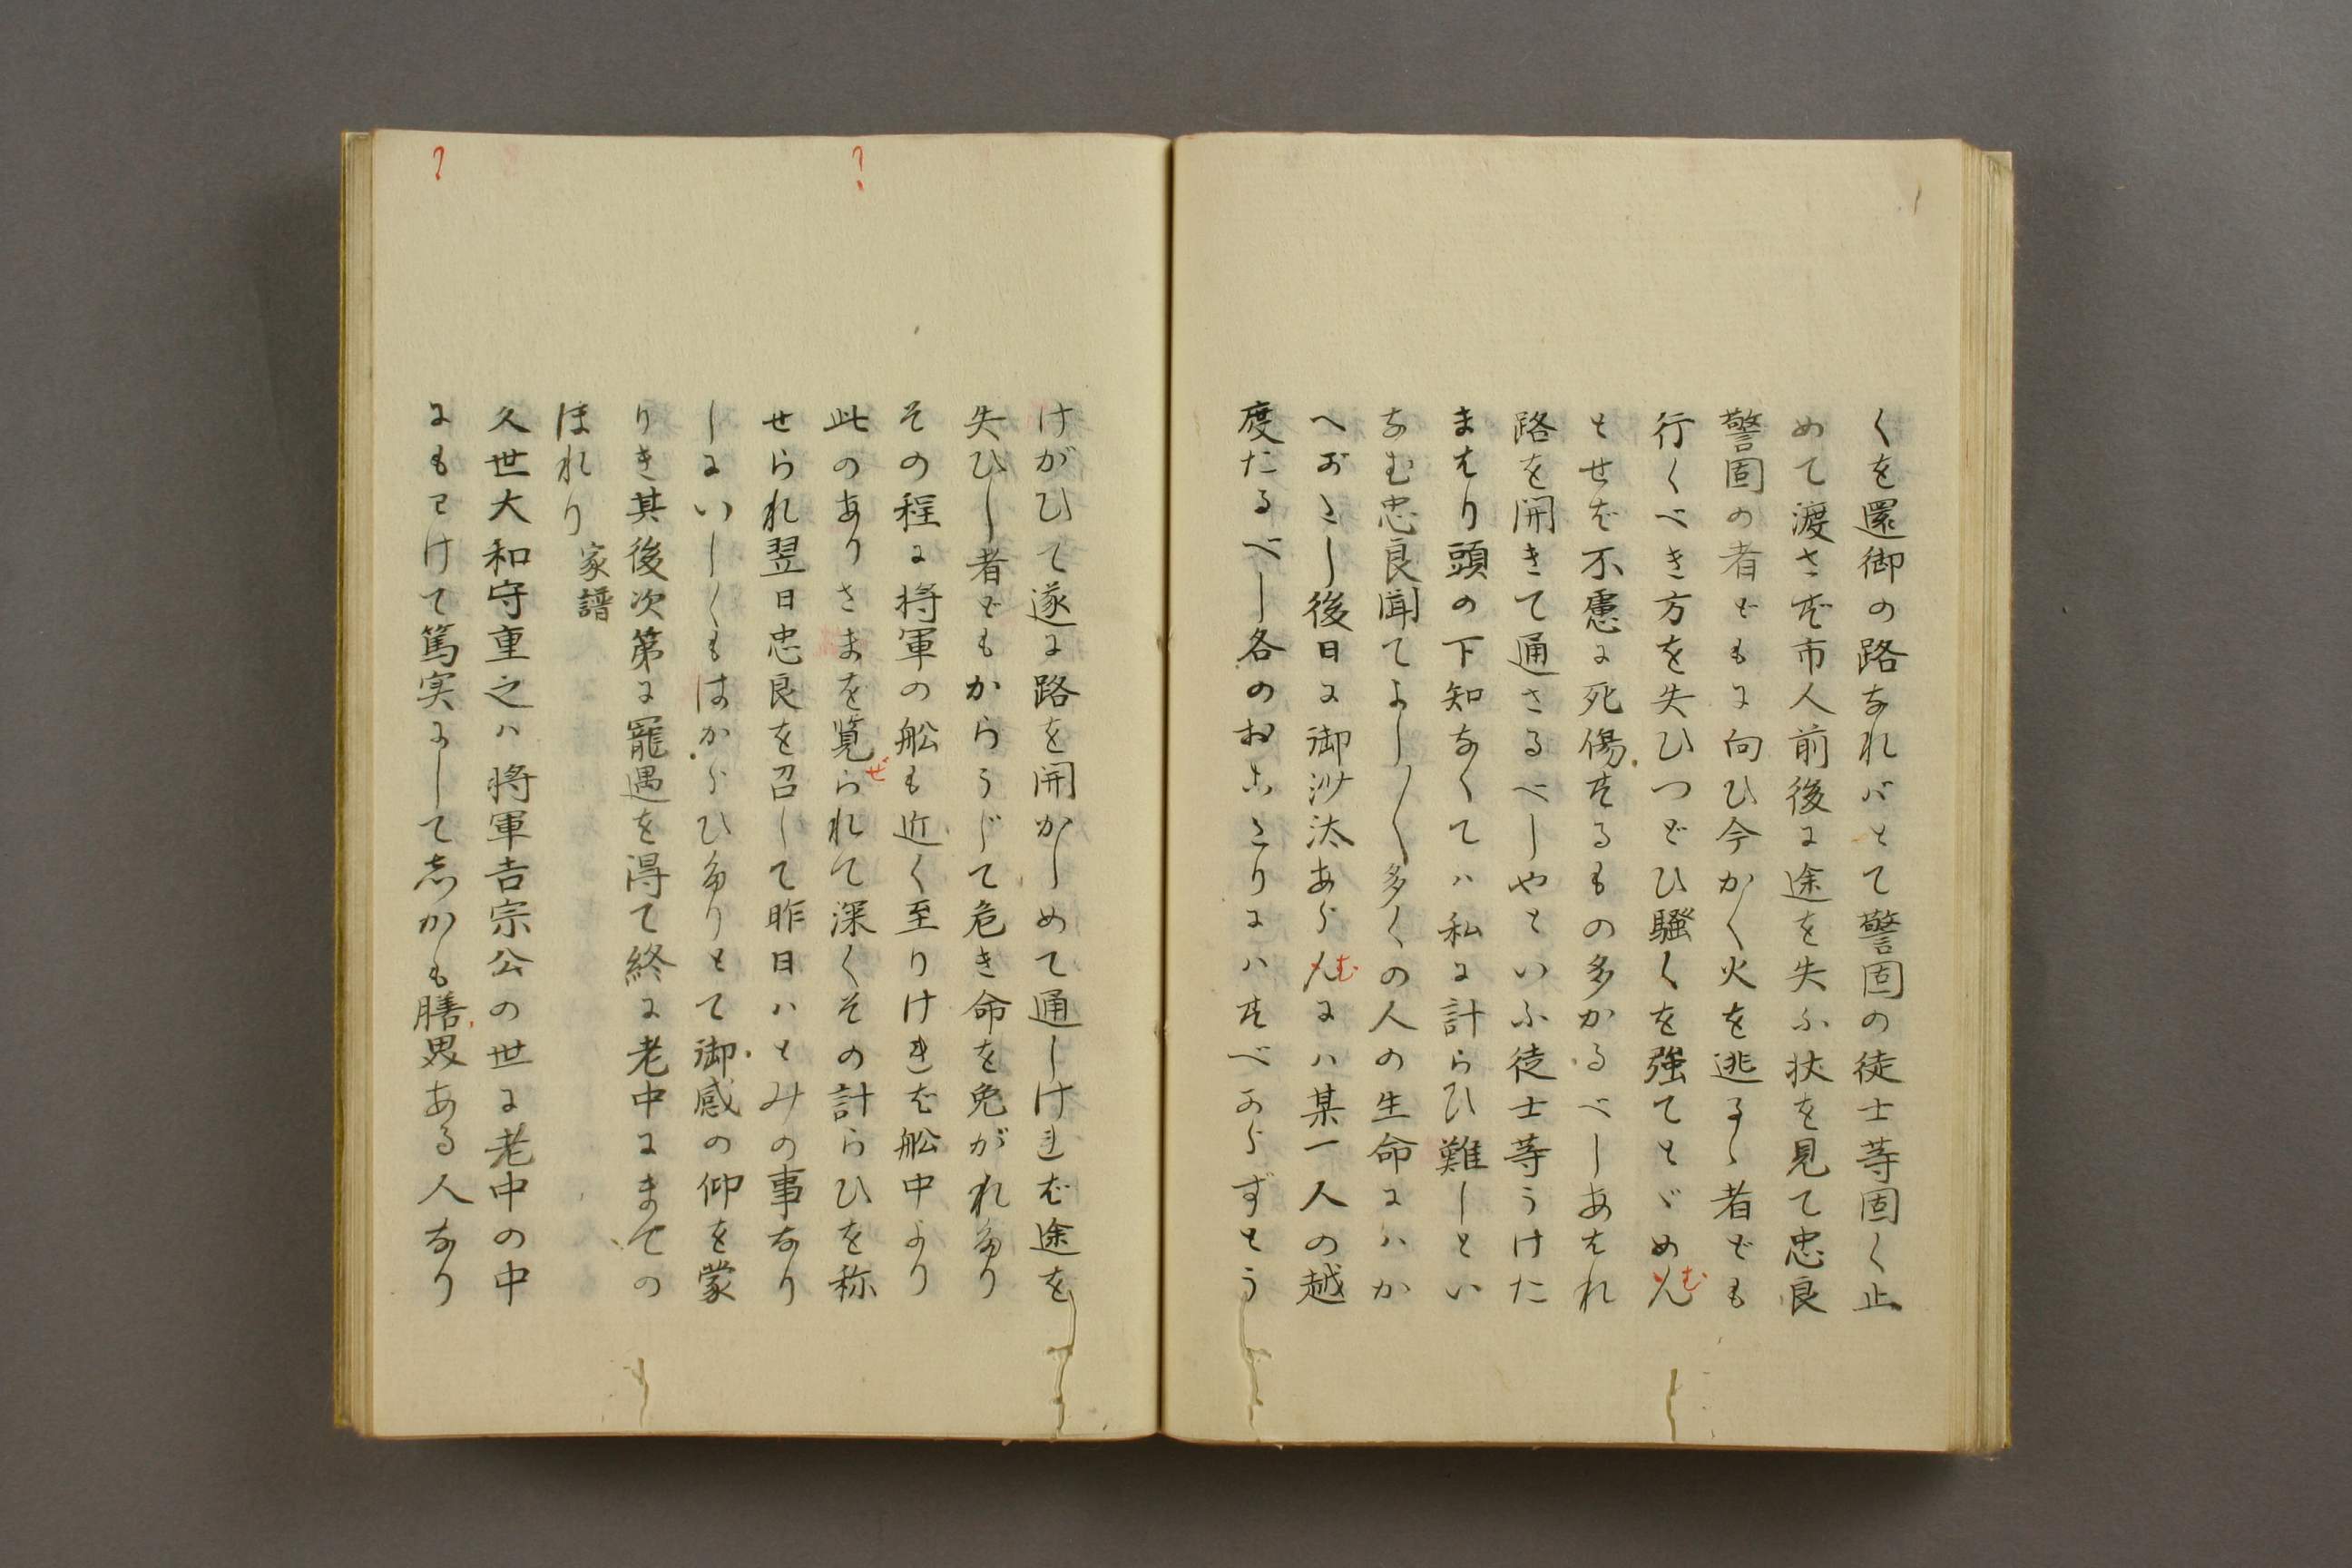 くを還御の路なれバとて警固の徒士等固く止
めて渡さず市人前後に途を失ふ状を見て忠良
警固の者どもに向ひ今かく火を逃るゝ者ども
行くべき方を失ひつどひ騒くを強てとゞめん
む
とせば不慮に死傷するもの多かるべしあはれ
路を開きて通さるべしやといふ徒士等うけた
まはり頭の下知なくてハ私に計らひ難しとい
なむ忠良聞てよし〳〵多くの人の生命にハか
へがたし後日に御沙汰あらんにハ某一人の越
む
度たるべし各のおこたりにハすべからずとう
けがひて遂に路を開かしめて通しければ途を
失ひし者どもからうじて危き命を免がれたり
その程に将軍の舩も近く至りければ舩中より
此のありさまを覧られて深くその計らひを称
ぜ
せられ翌日忠良を召して昨日ハとみの事なり
しにいしくもはからひたりとて御感の仰を蒙
りき其後次第に寵遇を得て終に老中にまての
ほれり 家譜
久世大和守重之ハ将軍吉宗公の世に老中の中
にもわけて篤実にして志かも膳畧ある人なり
?
?